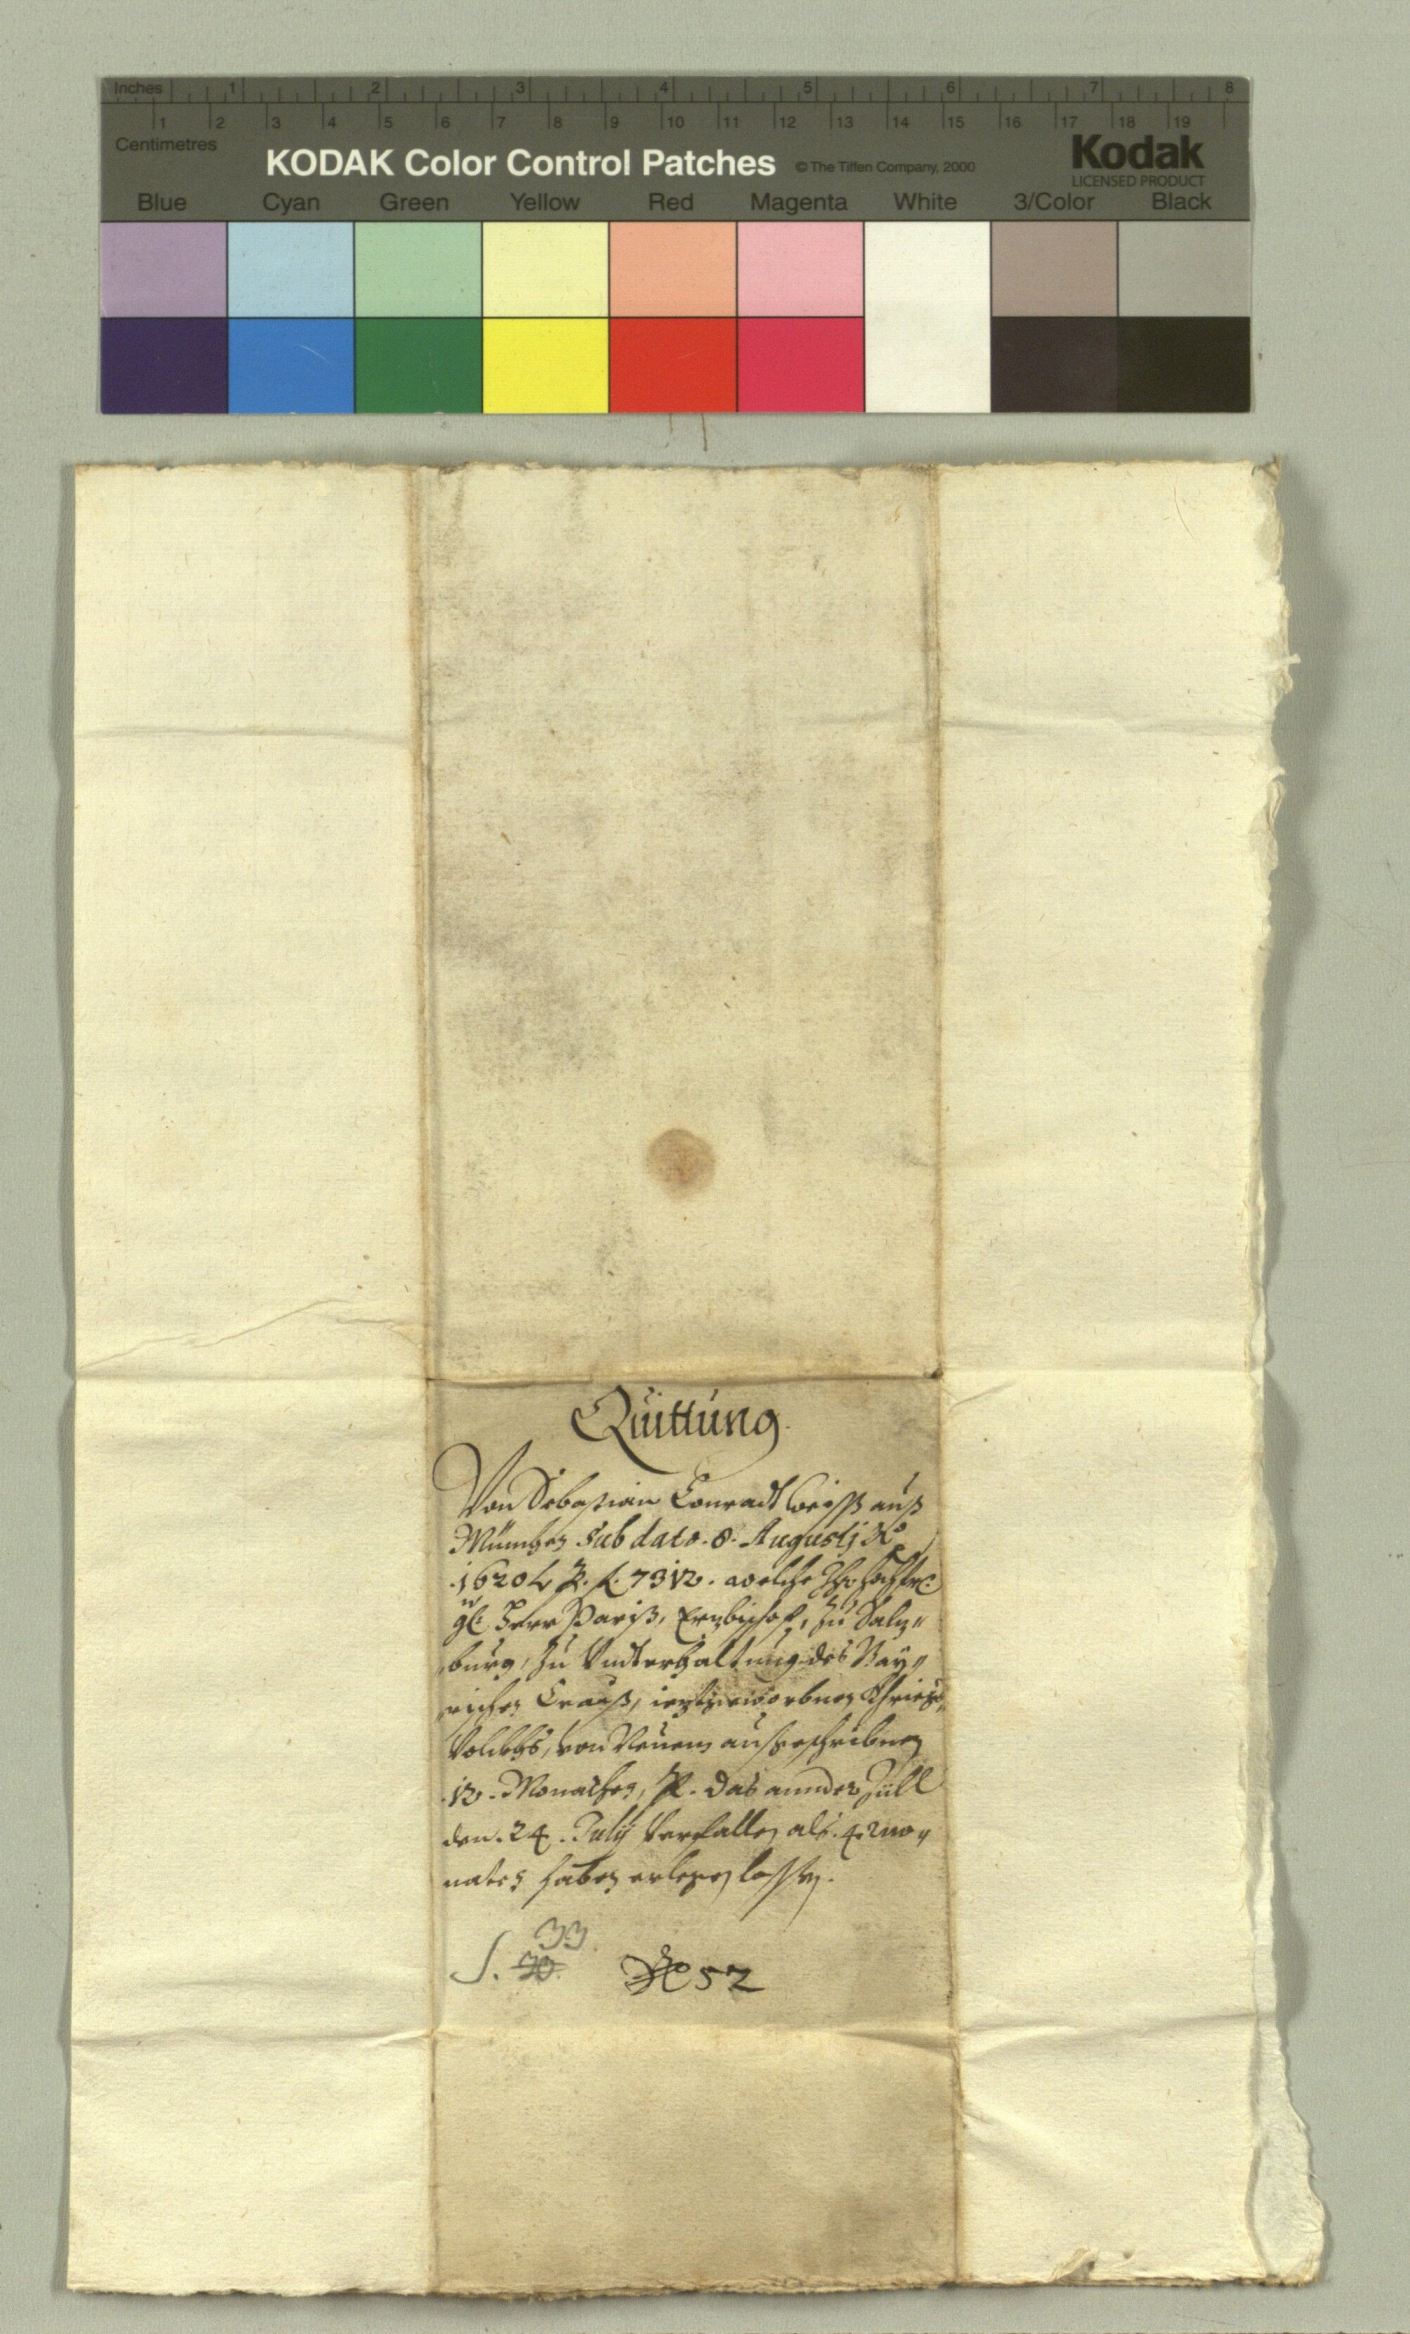 Inches 1 2 3 4 5 6 7 8
1 2 3 4 5 6 7 8 9 10 11 12 13 14 15 16 17 18 19
Centimetres
KODAK Color Control Patches © The Tiffen Company, 2000 Kodak
LICENSED PRODUCT
Blue Cyan Green Yellow Red Magenta White 3/Color Black
Quittung.
Von Sebastian Conradt auß
München sub dato .8. Augustj
7312. welche
Herr Pariß, Erzbischof, zu Salz„
„burg, zu Vnderhaltung des Bay„
rischen Craiß, ieztgeworbnen Khriegs„
Volckhs, von Neuem außgeschribnen
.12. Monathen, das annder Zill
den .24. July verfallen als .4. mo„
naten haben erlegen lassen.
33
52